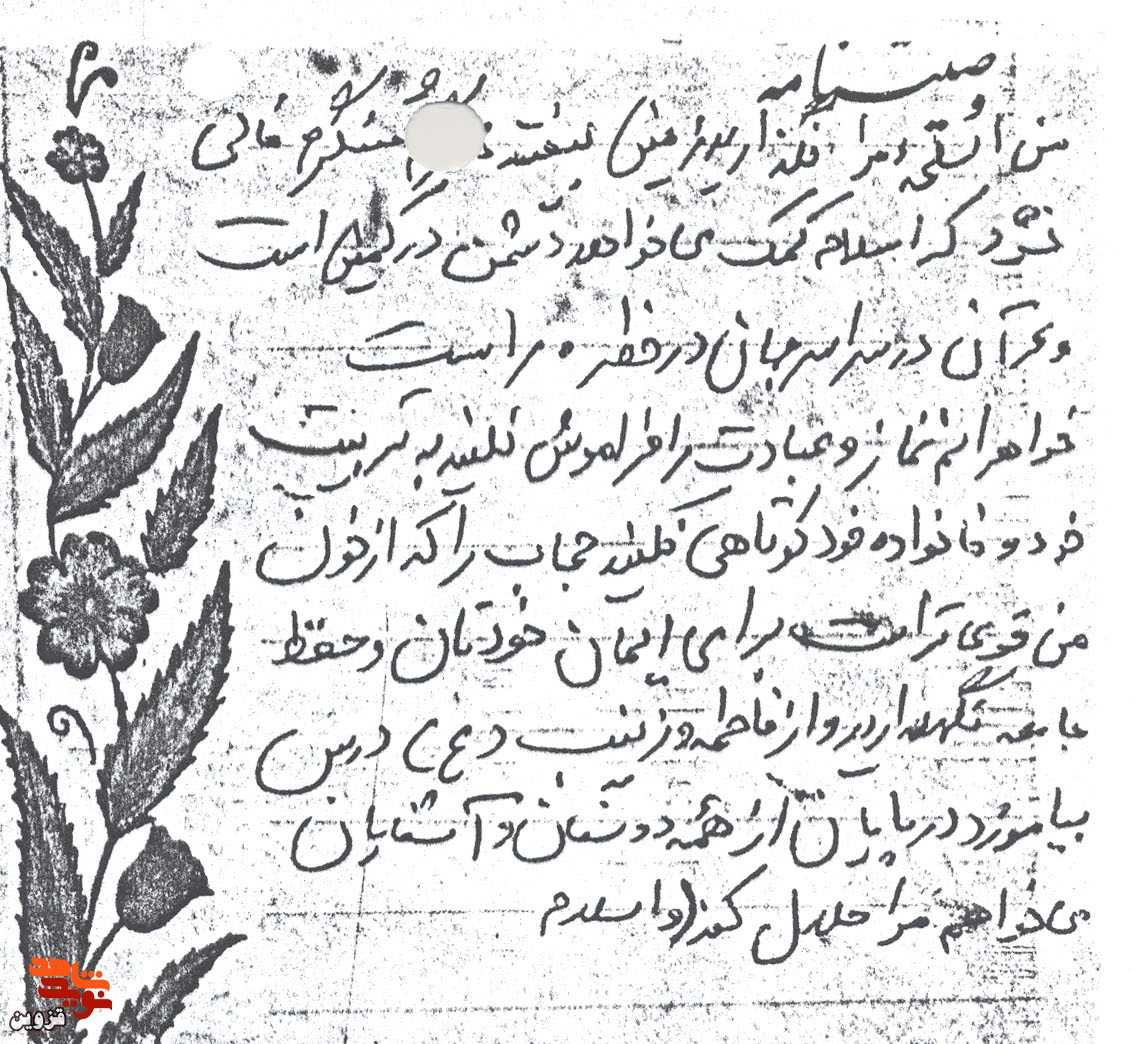 وصیتنامه
من اسلحه مرا نگذارید زمین بیفتد سنگرم خالی
نشود که اسلام کمک می خواهد دشمن در کمین است
و قرآن در سراسر جهان در خطر است
خواهرانم نماز و عبادت را فراموش نکنید به تربیت
خود و خانواده خود کوتاهی نکنید حجاب را که از خون
من قوی تر است برای ایمان خودتان و حفظ
جامعه نگهدارید و از فاطمه و زینب (ع) درس
بیاموزد در پایان از همه دوستان و آشنایان
می خواهم مرا حلال کند (واسلام
شاهد
نوید
قزوین